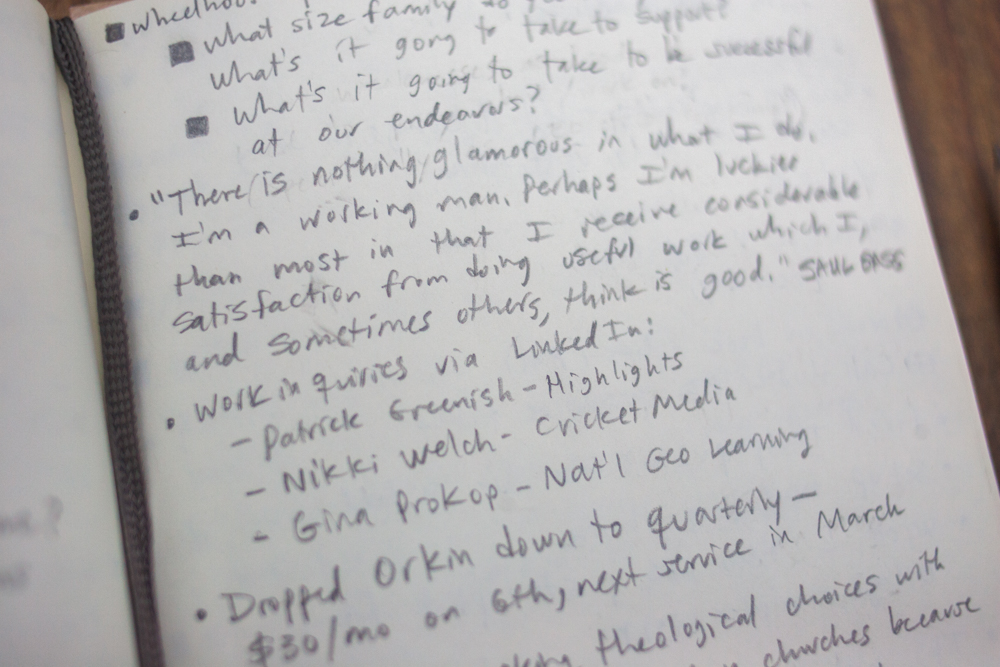 what size family do
what's it gong to take to support?
what's it going to take to be successful
at our endeavors?
"There is nothing glamorous in what I do.
I'm a working man. Perhaps I'm luckier
than most in that I receive considerable
satisfaction from doing useful work which I,
and sometimes others, think is good." SAUL BASS
Work inquiries via LinkedIn:
- Patrick Greenish - Highlights
- Nikki Welch - Cricket Media
- Gina Prokop - Nat'l Geo Learning
Dropped Orkin down to quarterly -
$30/mo on 6th, next service in March
theological choices with
churches because